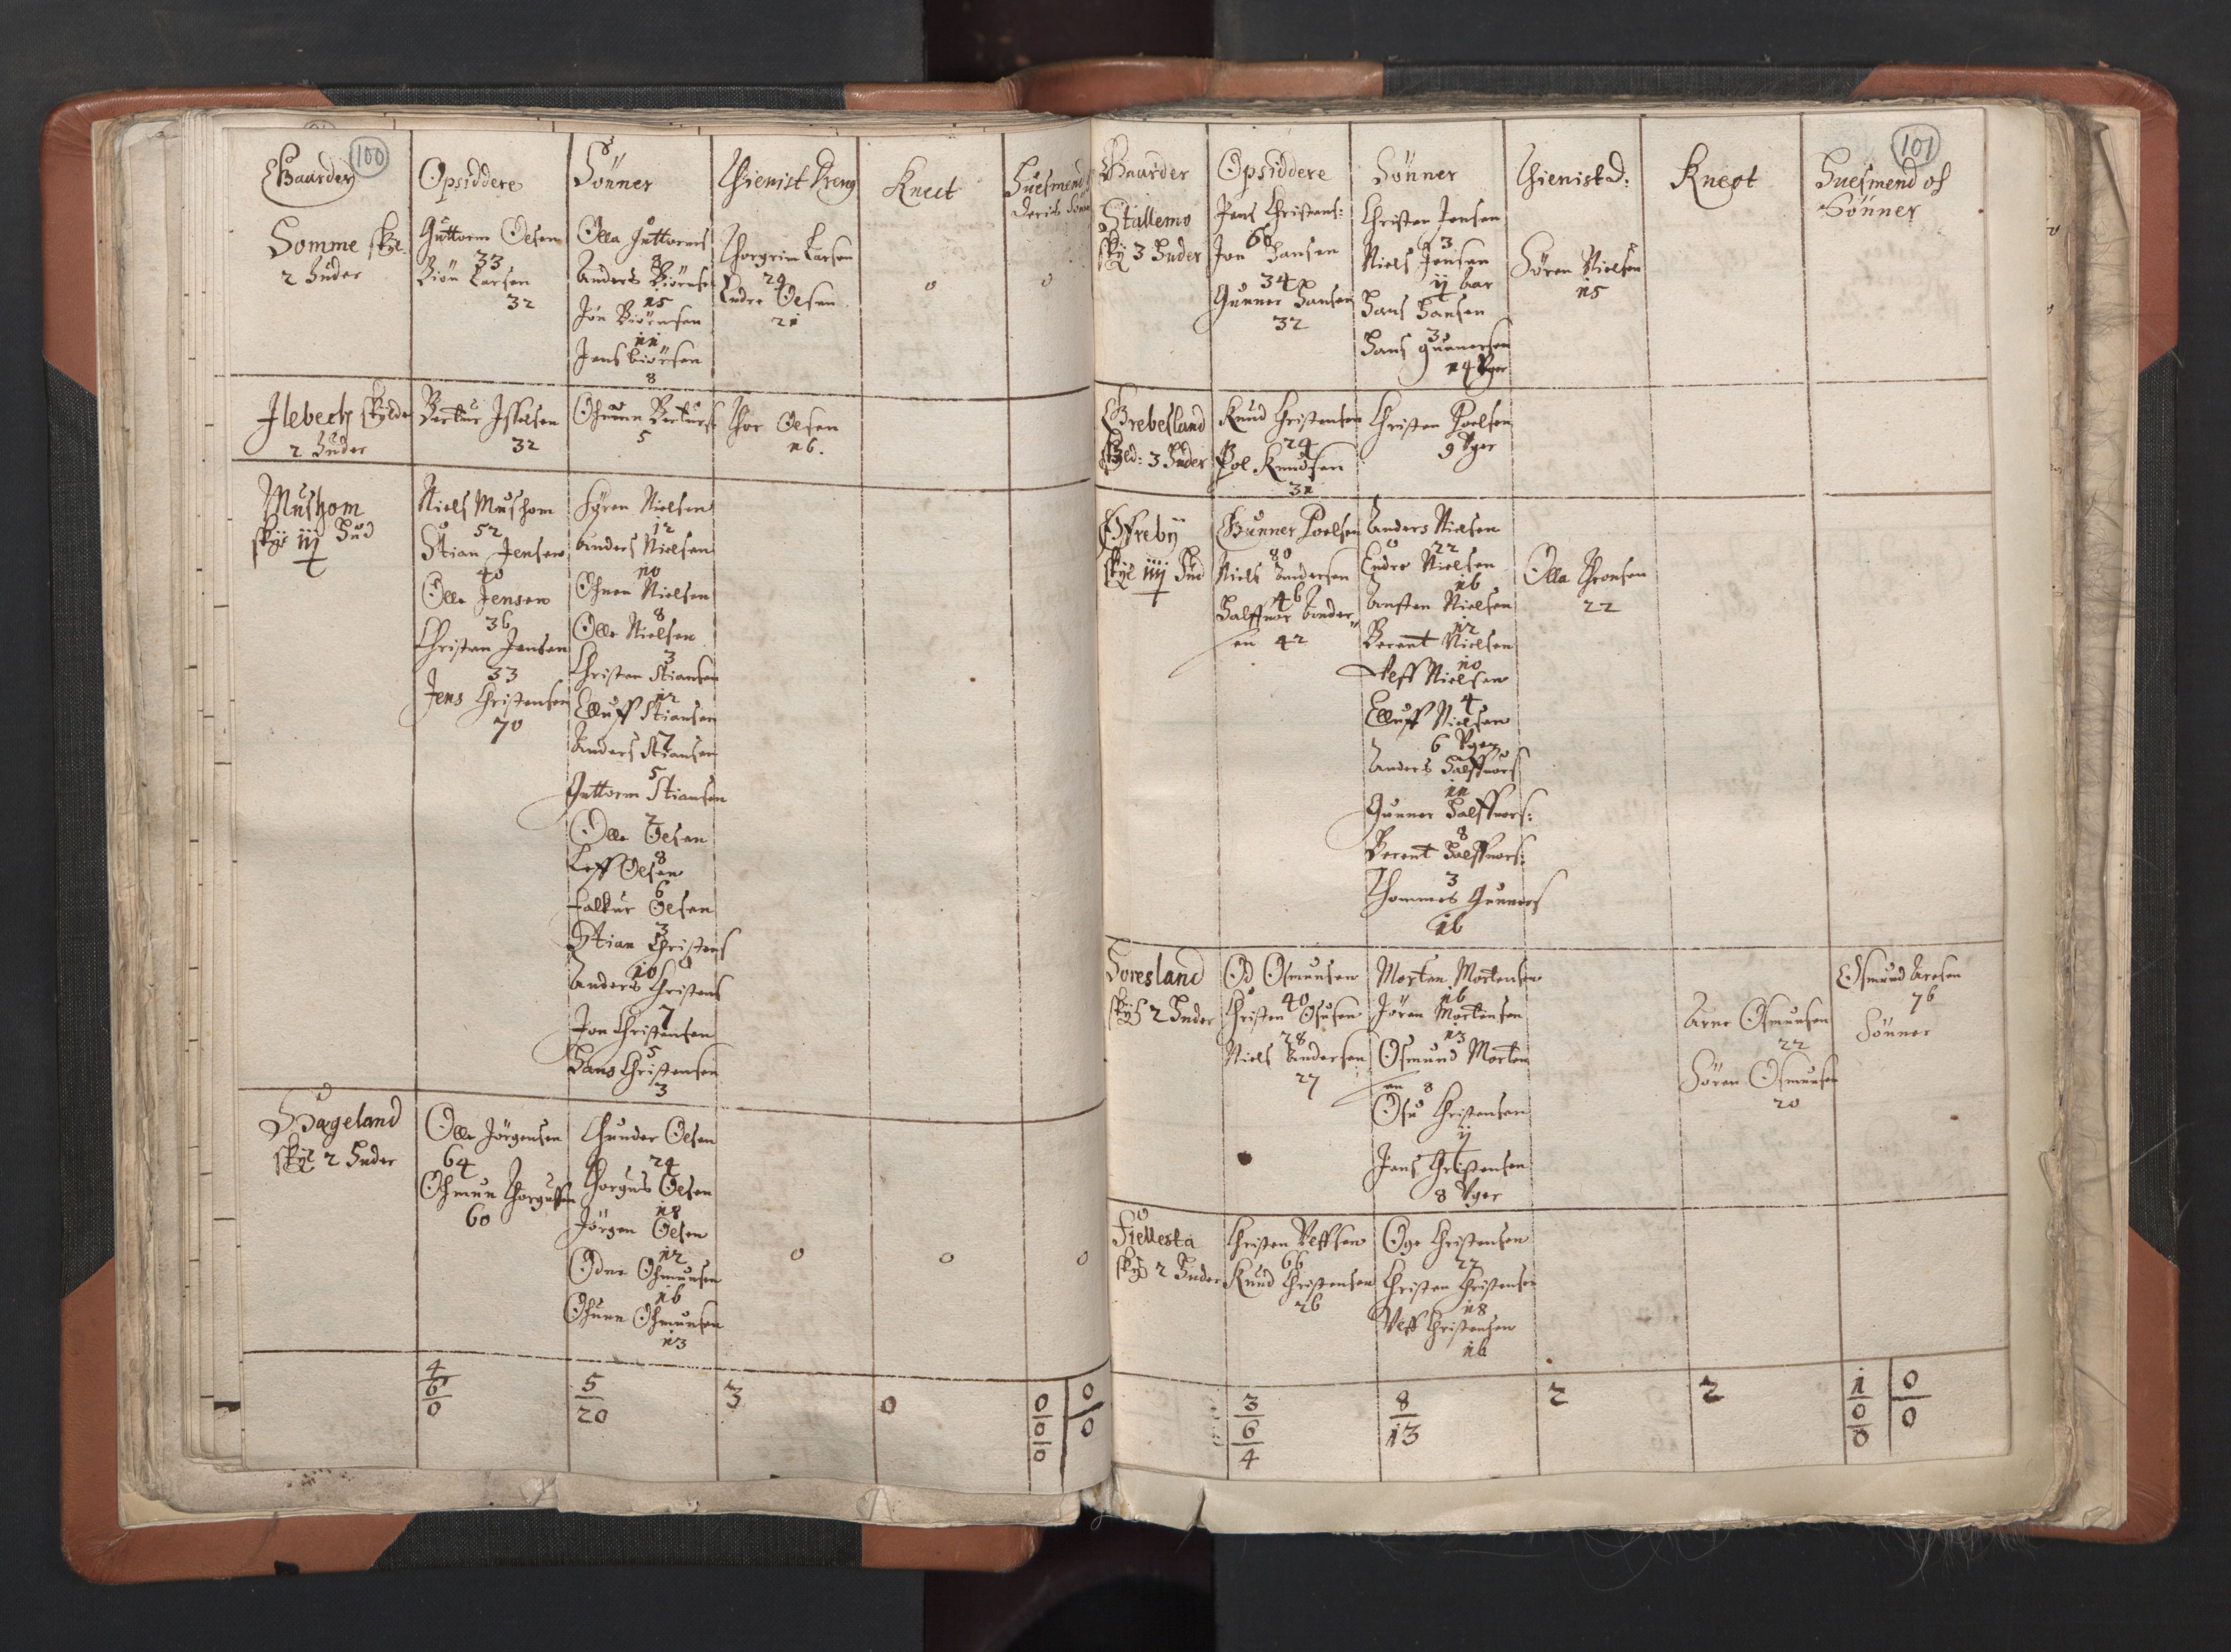 100
Gaarder
Opsiddere
Sönner
Thienist Dreng
Knect
Huesmend
Deris Sön
Somme skyl
2 Huder
Guttorm Olsen
33
Biön Larsen
32
Olla Guttorms
8
Anders Biörns
15
Jön Biörnsen
11
Jens biörsen
8
Thorgrim Larsen
Endre Olsen
21
0
0
Ilebech skylder
2 Huder
32
5
Thor Olsen
16.
Mushom
skyl iij Hud
Niels Mushom
52
Stian Jensen
40
Olle Jensen
36
Christen Jensen
33
Jens Christensen
70
Sören Nielsen
12
Anders Nielsen
10
Nielsen
8
Olle Nielsen
3
Christen Stiansen
12
Elluff Stiansen
7
Anders Stiansen
5
Guttorm Stiansen
2
Olle Olsen
8
Leff Olsen
6
Falkur Olsen
3
Stian Christens
10
Anders Christens
7
Jon Christensen
5
Hans Christensen
3
Hageland
skyl 2 Huder
Olle Jörgensen
64
Osmun
60
Gunder Olsen
24
Thorgus Olsen
18
Jörgen Olsen
12
Osmunsen
16
Osmunsen
13
0
0
0
4
6
0
5
20
3
0
0
0
0
0
0
101
Gaarder
Opsiddere
Sönner
Thienist D:
Knegt
Huesmend oc
Sönner
Stallemo
sky 3 Huder
Jens Christens:
60
Jon Hansen
34
Gunner Hansen
32
Christen Jensen
3
Niels Jensen
ij Aar
Hans Hansen
3
Hans Gunnersen
14 Vger
Sören Nielsen
15
Grebesland
skyld: 3 Huder
Knud Christensen
Pol Knudsen
31
Christen Poelsen
9 Vger
Öffreby
skyl iiij Hud
Gunner Poelsen
80
Niels Andersen
46
Halffuor Anders
en 42
Anders Nielsen
22
Endre Nielsen
16
Austen Nielsen
12
Berent Nielsen
10
Aleff Nielsen
4
Elluff Nielsen
6 Vger
Anders Halffuors
11
Gunner Halffuors:
8
Berent Halffuors:
3
Thommes Gunners
16
Olla Thronsen
22
Horesland
skyl 2 Huder
Od Osmunsen
40
Christen Osusen
28
Niels Andersen
27
Morten Mortensen
16
Jören Mortensen
13
Osmund Morten
en 8
Osu Christensen
ij
Jens Christensen
8 Vger
Arne Osmunsen
22
Sören Osmunsen
20
Osmund Aresen
76
Sönner
Fiellesta
skyl 2 Huder
Christen Vlffsen
66
Knud Christensen
26
Ouge Christensen
22
Christen Christensen
18
Vlff Christensen
16
3
6
4
8
13
2
2
1
0
0
0
0